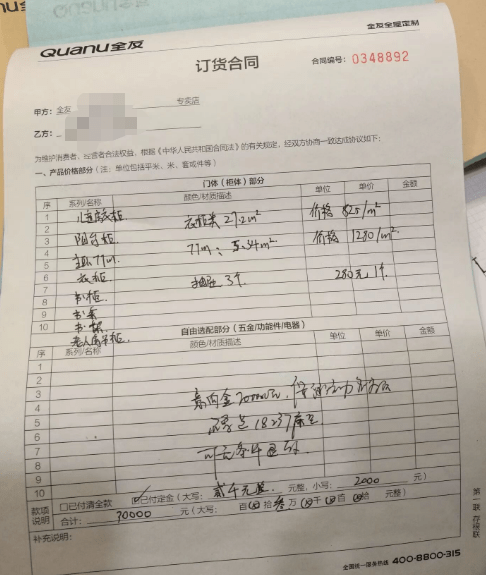 QUANU全友
全友全屋定制
订货合同
合同编号：0348892
甲方：全友 专卖店
乙方：
为维护消费者，经营者合法权益，根据《中华人民共和国合同法》的有关规定，经双方协商一致达成协议如下：
一、产品价格部分（注：单位包括平米、米、套或件等）
门体（柜体）部分
序 系列/名称 颜色/材质描述 单位 单价 金额
1 儿童衣柜 衣柜类 27.2m² 价格 825/m²
2
3 阳台柜
4 主卧门 门： 5.34m² 价格 1280/m²
5
6 衣柜 抽屉 3个 280元 1个
7
8 书柜
9 书桌
10 书柜
老人房衣柜
自由选配部分（五金/功能件/电器）
序 系列/名称 颜色/材质描述 单位 单价 金额
1
2
3
4 意向金2000元，
5
6
7 可无条件退
8
9
10
款项说明 口已付清全款 已付定金（大写： 贰千元整 元整，小写： 2000 元）
合计： 30000 元（大写： 百 拾 叁 万 千 百 拾 元整）
补充说明：
第一联存根联
全国统一服务热线 400-8800-315